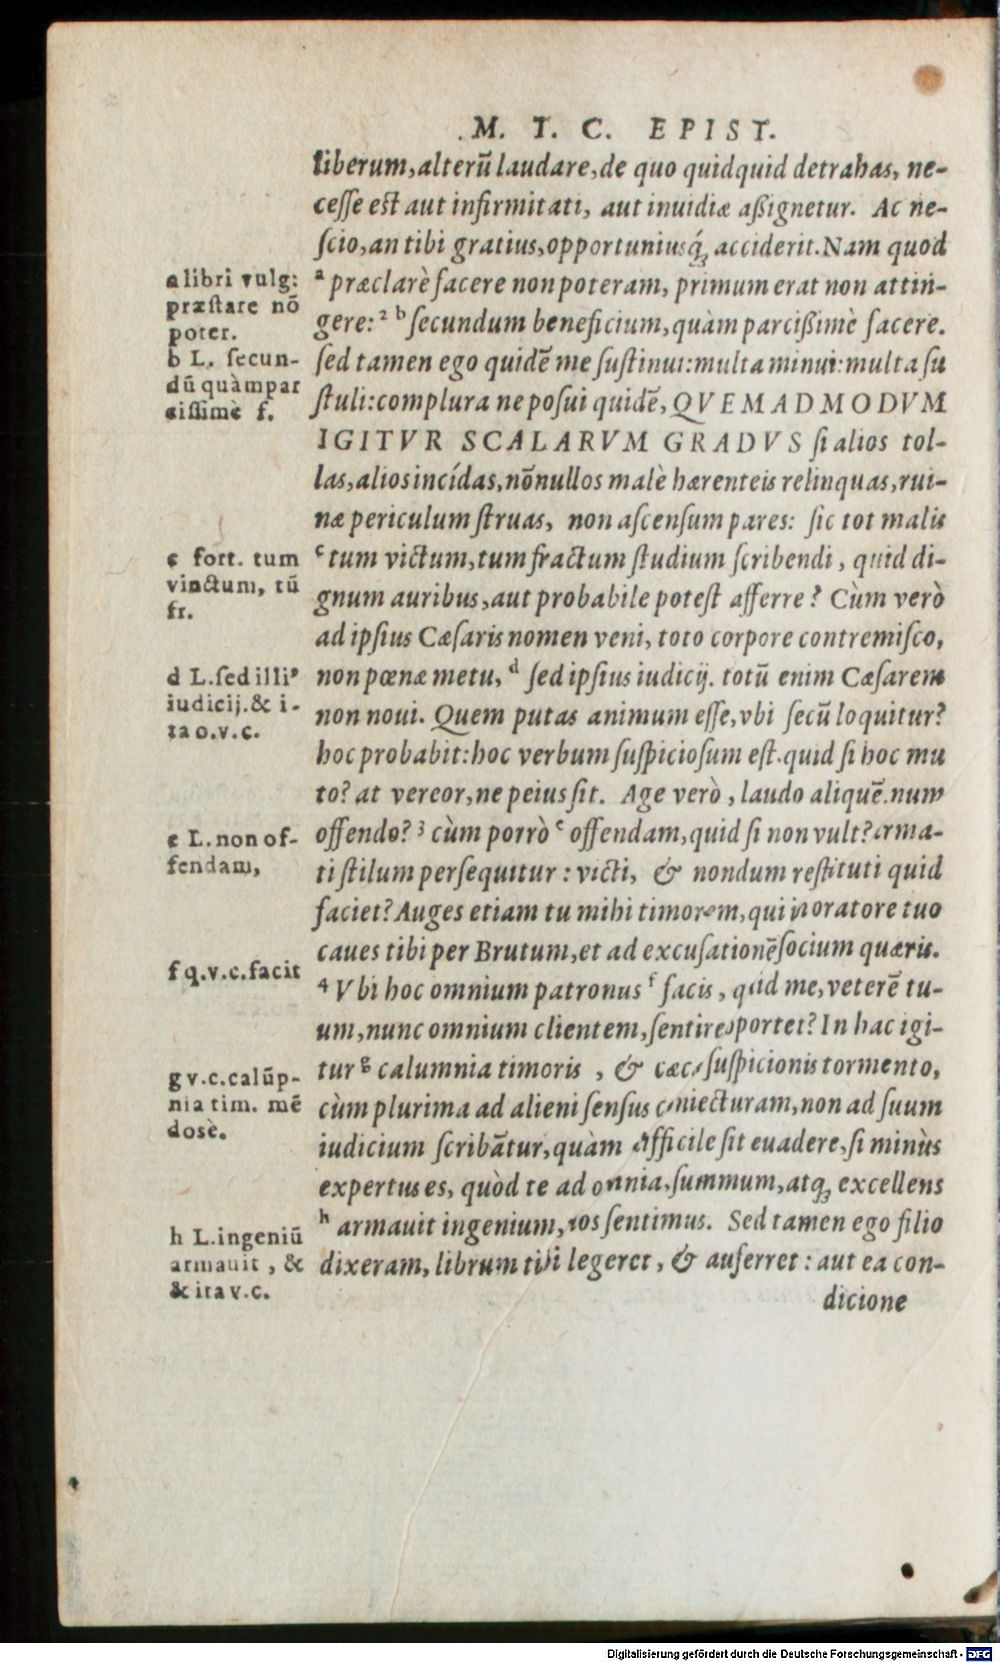 M. T. C. EPIST.
liberum, alterũ laudare, de quo quidquid detrahas, ne-
cesse est aut infirmitati, aut inuidiæ aßignetur. Ac ne-
scio, an tibi gratius, opportuniusq́; acciderit. Nam quod
ª præclarè facere non poteram, primum erat non attin-
gere: ² ᵇ secundum beneficium, quàm parcißimè facere.
sed tamen ego quidẽ me sustinui: multa minui: multa su
stuli: complura ne posui quidẽ, QVEMADMODVM
IGITVR SCALARVM GRADVS si alios tol-
las, alios incídas, nõnullos malè hærenteis relinquas, rui-
næ periculum struas, non ascensum pares: sic tot malis
ᶜ tum victum, tum fractum studium scribendi, quid di-
gnum auribus, aut probabile potest afferre? Cùm verò
ad ipsius Cæsaris nomen veni, toto corpore contremisco,
non pœnæ metu, ᵈ sed ipsius iudicij. totũ enim Cæsarem
non noui. Quem putas animum esse, vbi secũ loquitur?
hoc probabit: hoc verbum suspiciosum est. quid si hoc mu
to? at vereor, ne peius sit. Age verò, laudo aliquẽ. num
offendo? ³ cùm porrò ᵉ offendam, quid si non vult? arma-
ti stilum persequitur: victi, & nondum restituti quid
faciet? Auges etiam tu mihi timorem, qui in oratore tuo
caues tibi per Brutum, et ad excusationẽ socium quæris.
⁴ Vbi hoc omnium patronus ᶠ facis, quid me, veterẽ tu-
um, nunc omnium clientem, sentire oportet? In hac igi-
tur ᵍ calumnia timoris, & cæcæ suspicionis tormento,
cùm plurima ad alieni sensus coniecturam, non ad suum
iudicium scribãtur, quàm difficile sit euadere, si minùs
expertus es, quòd te ad omnia, summum, atq; excellens
ʰ armauit ingenium, nos sentimus. Sed tamen ego filio
dixeram, librum tibi legeret, & auferret: aut ea con-
dicione
a libri vulg:
præstare nõ
poter.
b L. secun-
dũ quàm par
cissimè f.
c fort. tum
vinctum, tũ
fr.
d L. sed illiꝰ
iudicij. & i-
ta o. v. c.
e L. non of-
fendam,
f q. v. c. facit
g v. c. calũp-
nia tim. mẽ
dosè.
h L. ingeniũ
armauit, &
& ita v. c.
Digitalisierung gefördert durch die Deutsche Forschungsgemeinschaft - DFG